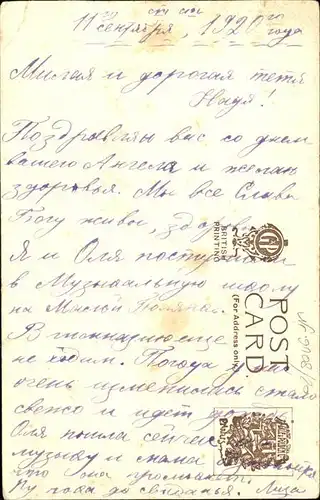 11го сентября, 1920го года
Милая и дорогая тетя
Надя!
Поздравляю вас со днем
вашего Ангела и желаю
здоровья. Мы все Слава
Богу живы, здоровы
Я и Оля поступили
в Музыкальную школу
на Малой Поляне.
В гимназию еще
не ходим. Погода у нас
очень изменилась стало
свежо и идет дождь
Оля пошла сейчас
музыку и мама
что она
Ну пока до свиданья. Лиза
BRITISH
PRINTING
POST
CARD.
(For Address only)